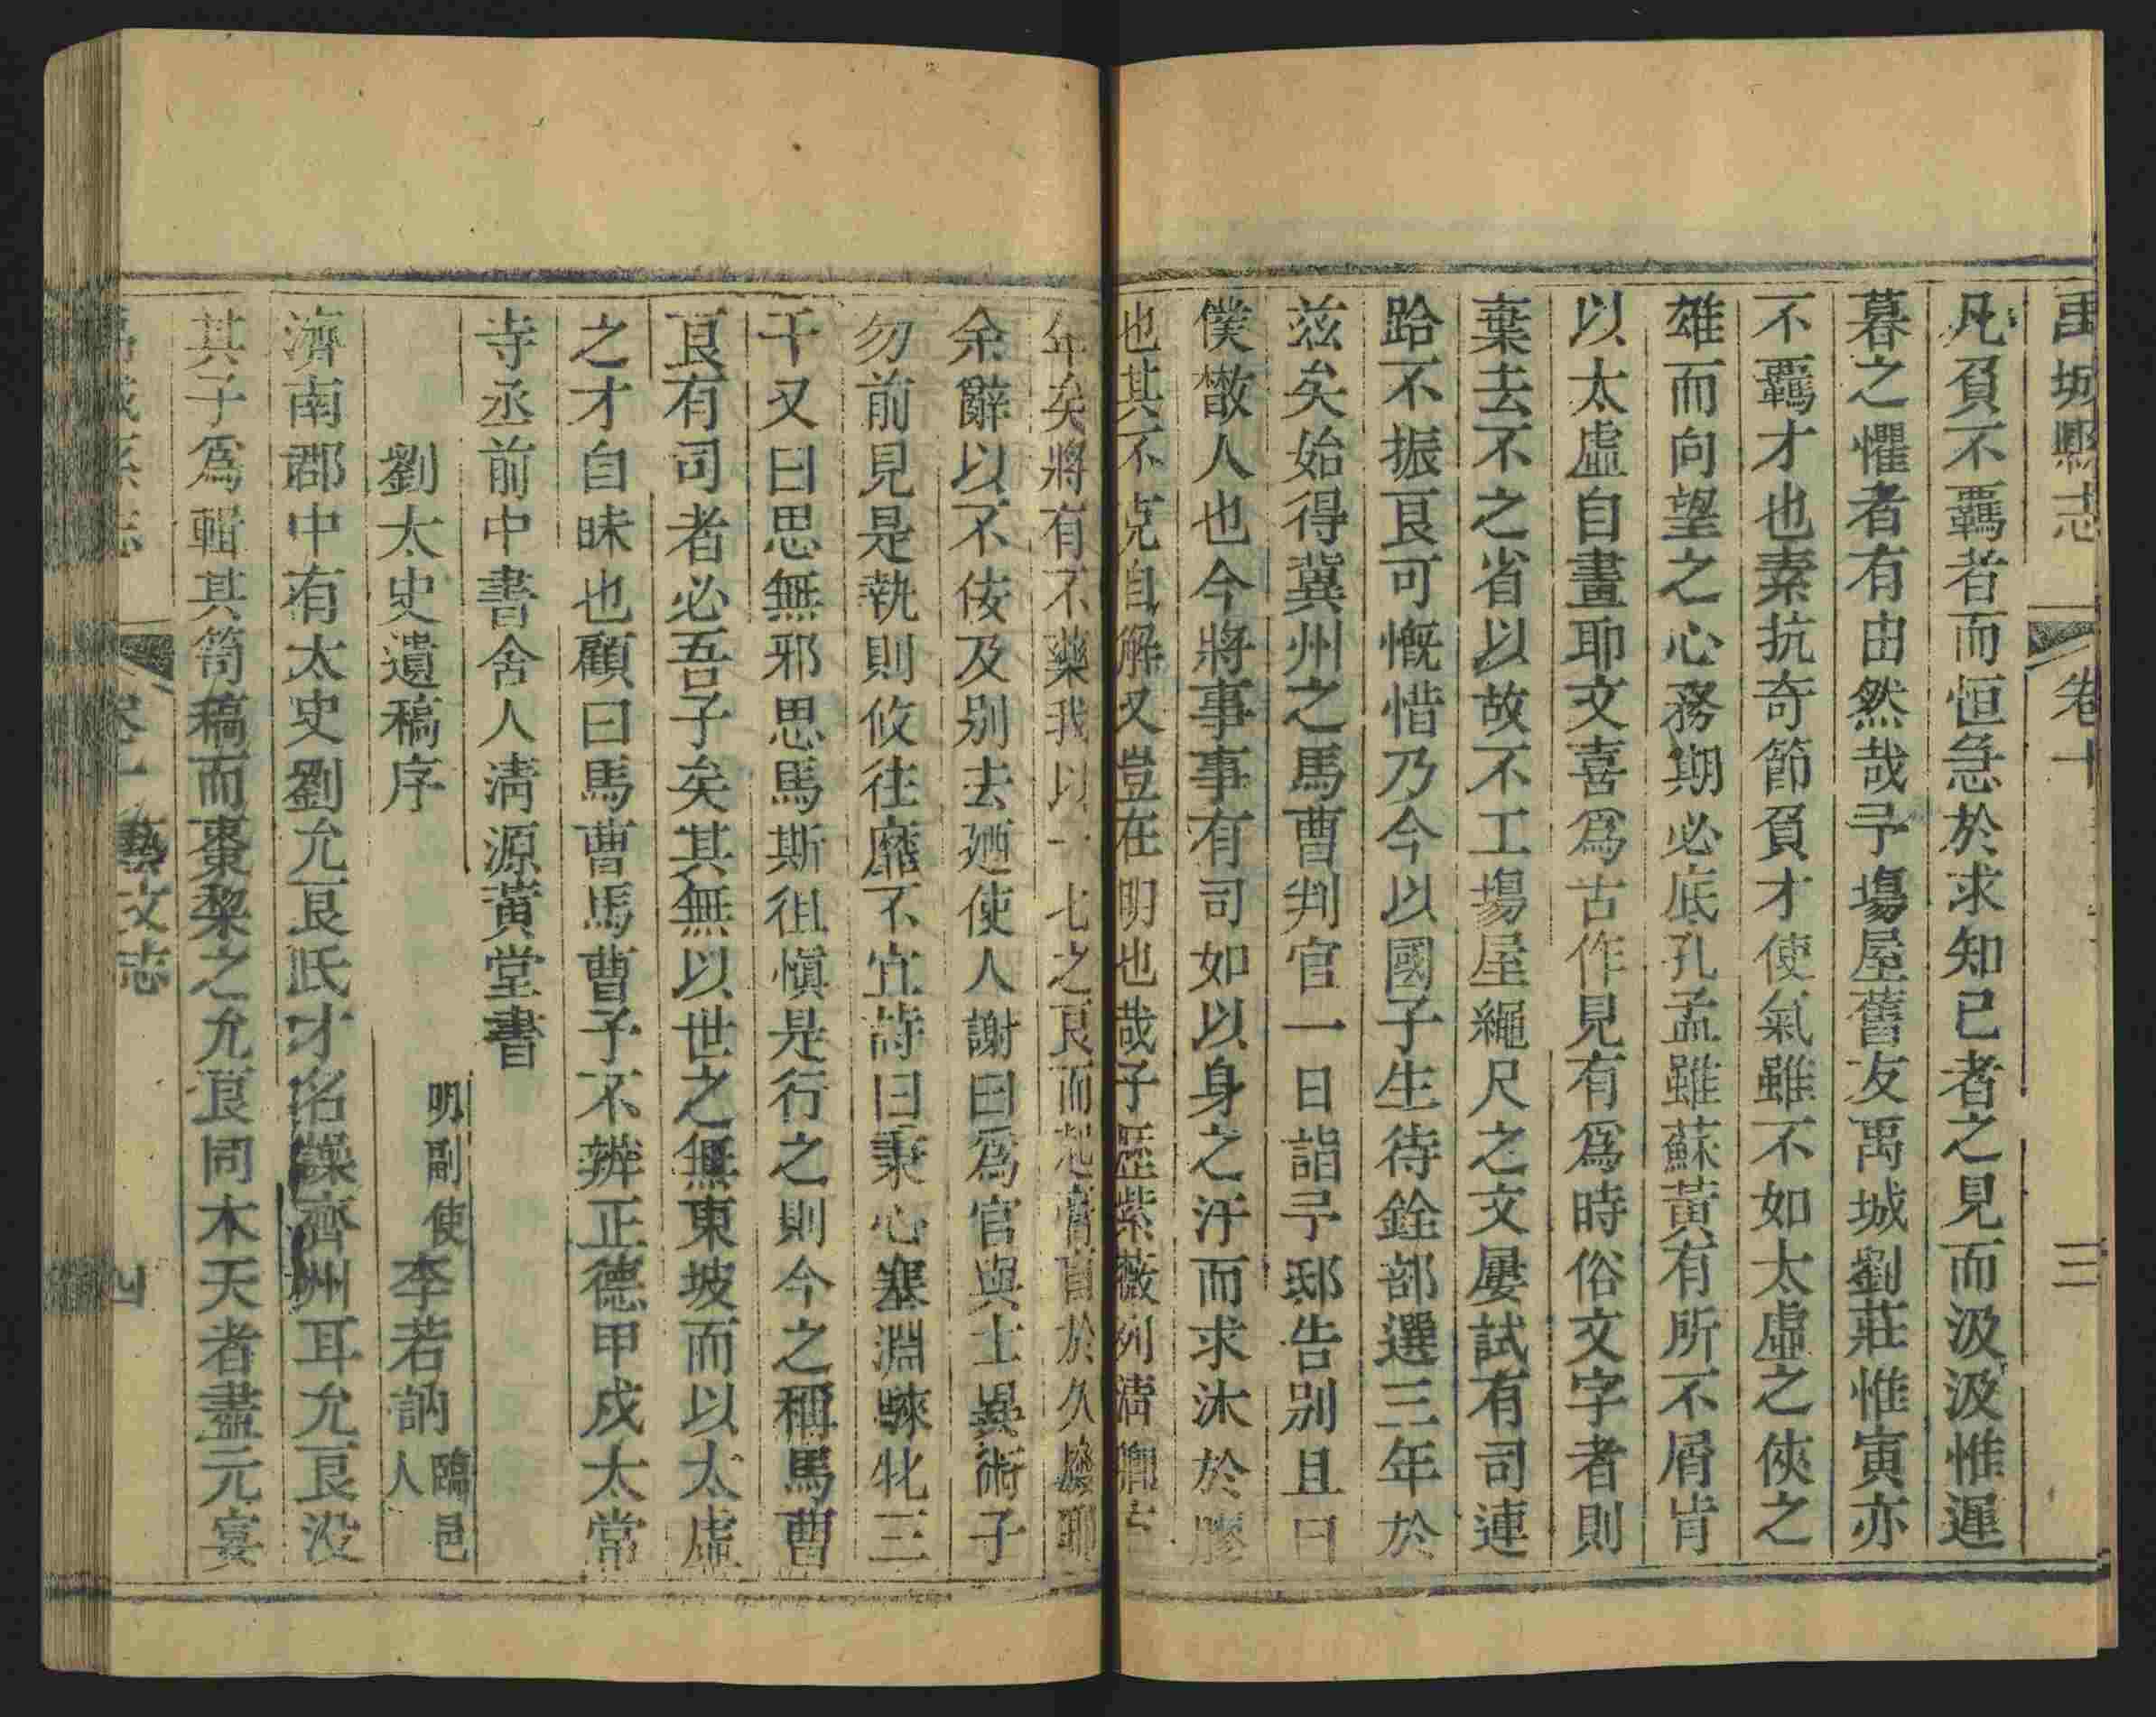 禹城縣志 卷十 三
凡負不羈者而恒急於求知已者之見而汲汲惟遲
暮之懼者有由然哉予塲屋舊友禹城劉莊惟寅亦
不羈才也素抗奇節負才使氣雖不如太虛之俠之
雄而向望之心務期必底孔孟雖蘇黃有所不屑肯
以太虛自畫耶文喜爲古作見有爲時俗文字者則
棄去不之省以故不工塲屋繩尺之文屢試有司連
跲不振良可慨惜乃今以國子生待銓部選三年於
茲矣始得冀州之馬曹判官一日詣予邸告别且曰
僕憨人也今將事事有司如以身之汙而求沐於膠
也其不克自解又豈在明也哉子歷紫薇列清卿
年矣將有不藥我以一七之良而起膏肓於久廢耶
余辭以不佞及别去廼使人謝曰爲官與士異術子
勿前見是執則攸往靡不宜詩曰秉心塞淵騋牝三
千又曰思無邪思馬斯徂愼是行之則今之稱馬曹
良有司者必吾子矣其無以世之無東坡而以太虛
之才自昧也顧曰馬曹馬曹予不辨正德甲戌太常
寺丞前中書舍人淸源黃堂書
劉太史遺稿序 明副使李若訥臨邑人
濟南郡中有太史劉允良氏才名譟齊州耳允良没
其子爲輯其笥稿而棗棃之允良同木天者盡元宴
卷十藝文志 四